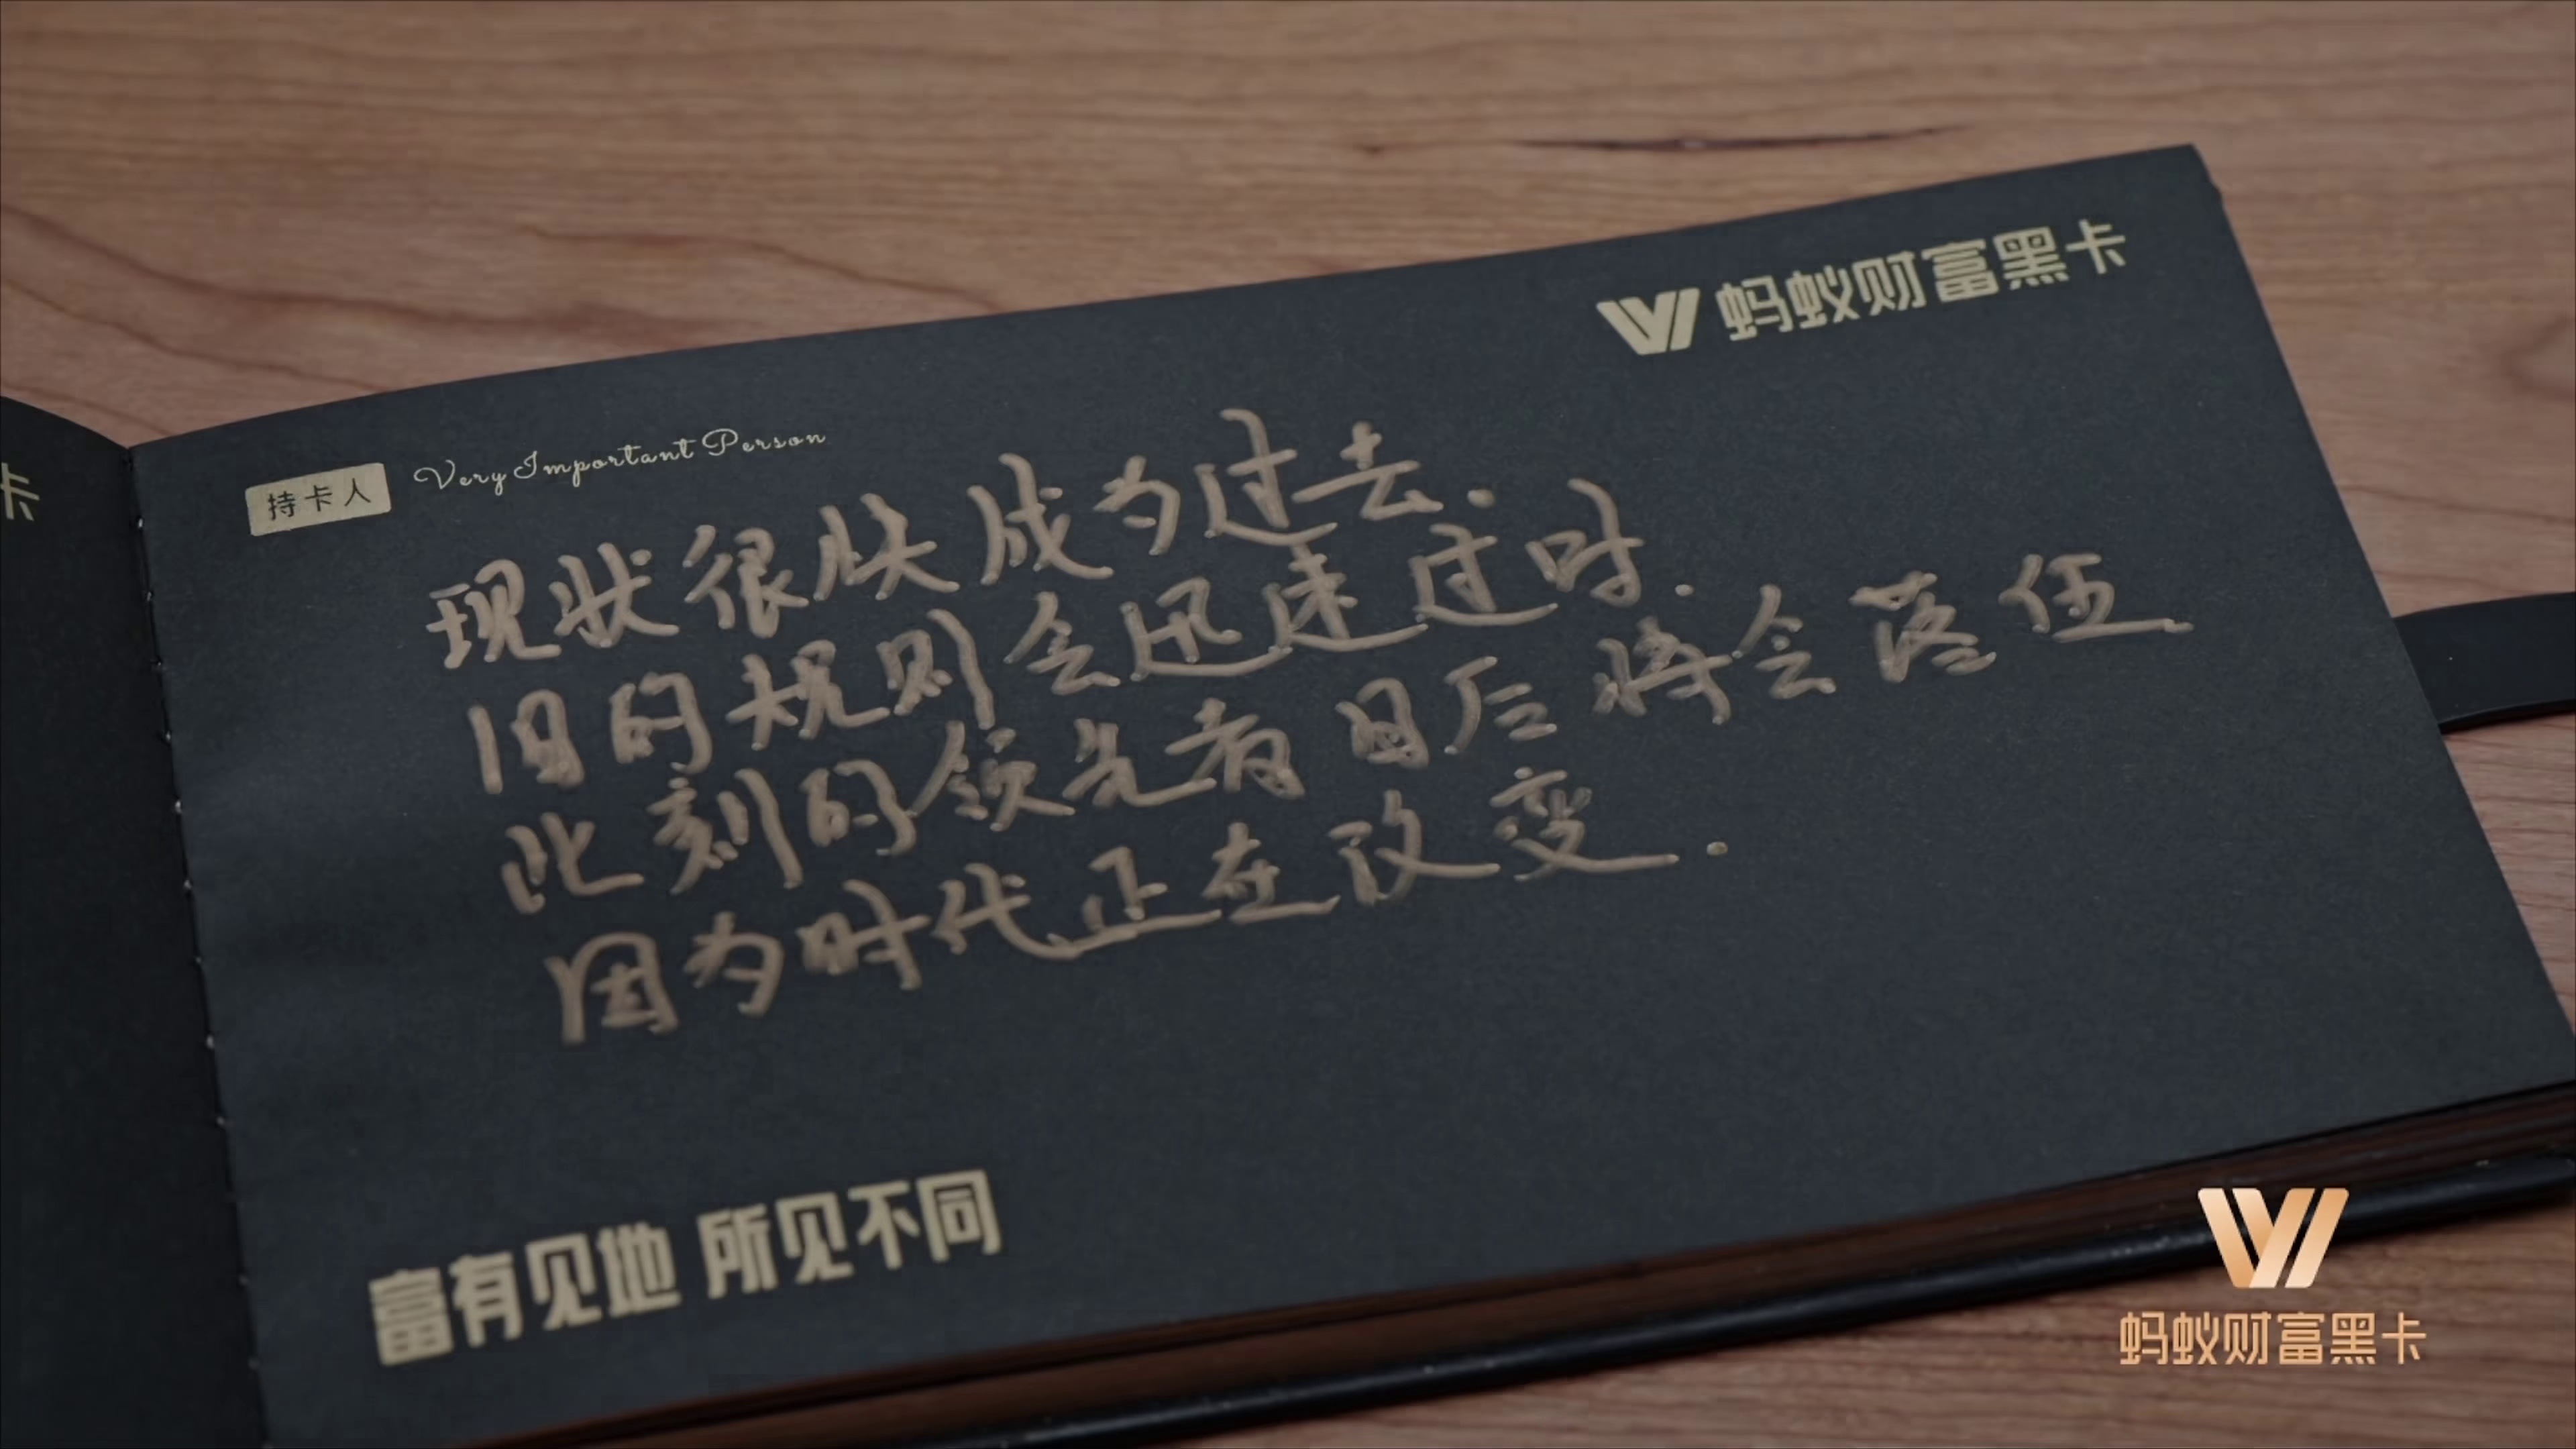 卡
蚂蚁财富黑卡
持卡人 Very Important Person
现状很快成为过去.
旧的规则会迅速过时.
此刻的领先者日后将会落伍
因为时代正在改变.
富有见地 所见不同
蚂蚁财富黑卡